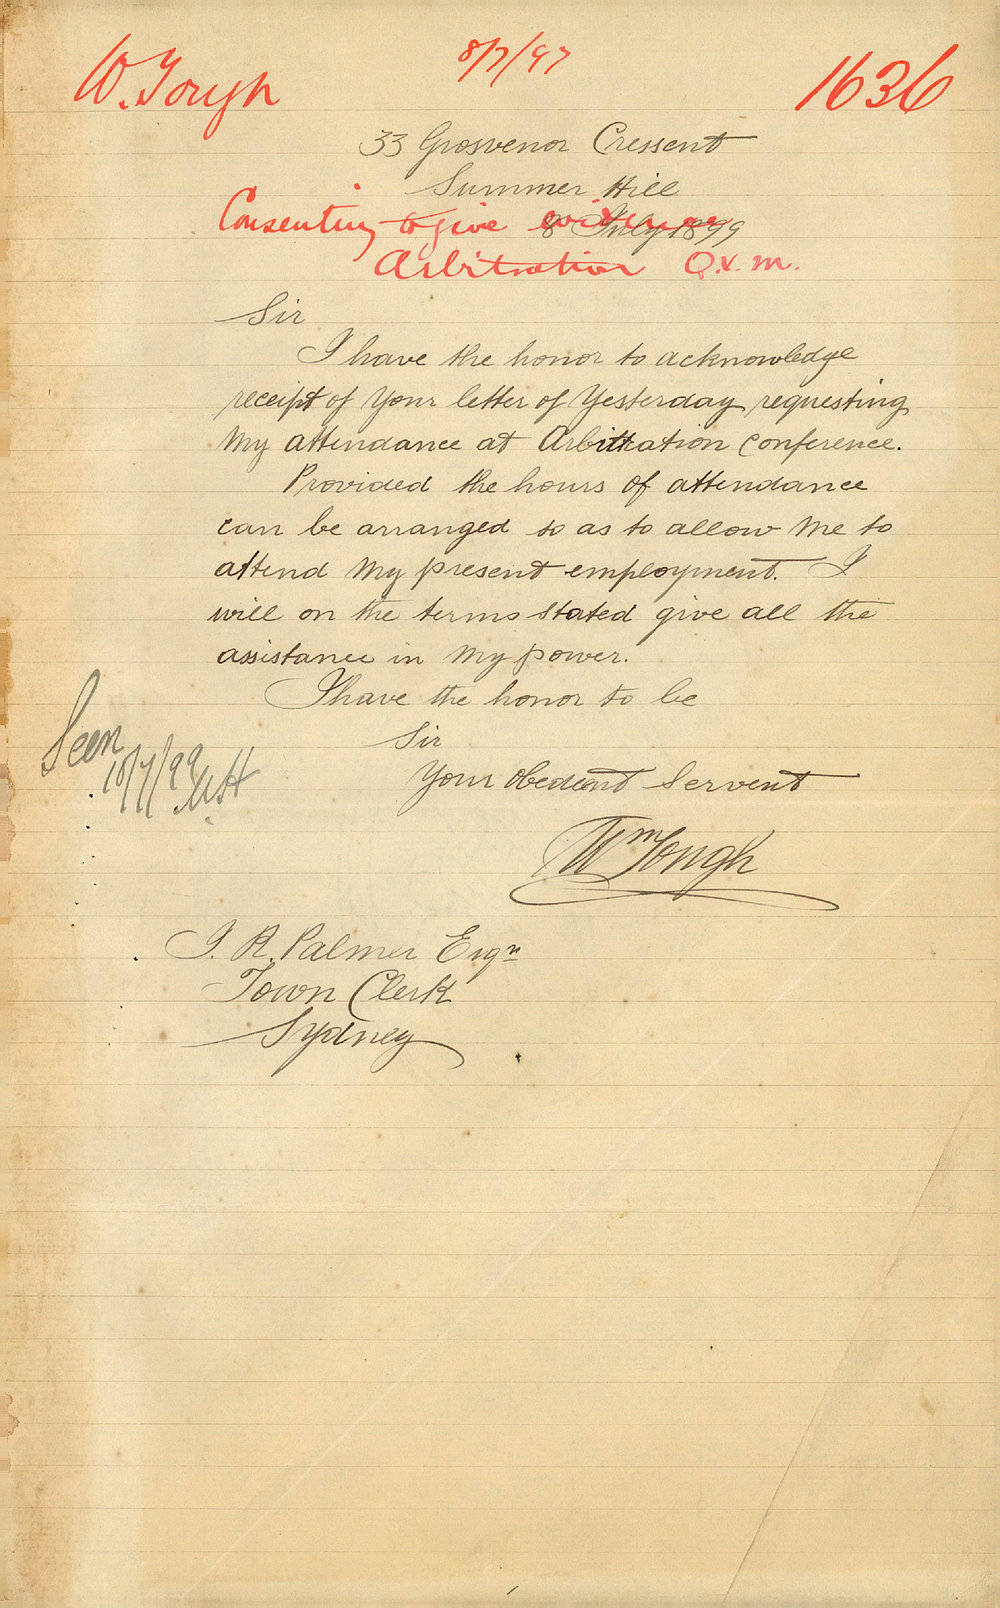 W. Tough
8/7/97
1636
33 Grosvenor Cressent
Summer Hill
8 July 1899
Consenting to give evidence
Arbitration Q.V.M.
Sir
I have the honor to acknowledge
receipt of your letter of Yesterday requesting
my attendance at Arbittration Conference.
Provided the hours of attendance
can be arranged so as to allow me to
attend my present employment. I
will on the terms stated give all the
assistance in my power.
I have the honor to be
Sir
Your obedeant Servent
Wm Tough
Seen
10/7/99
J. A. Palmer Esqr
Town Clerk
Sydney